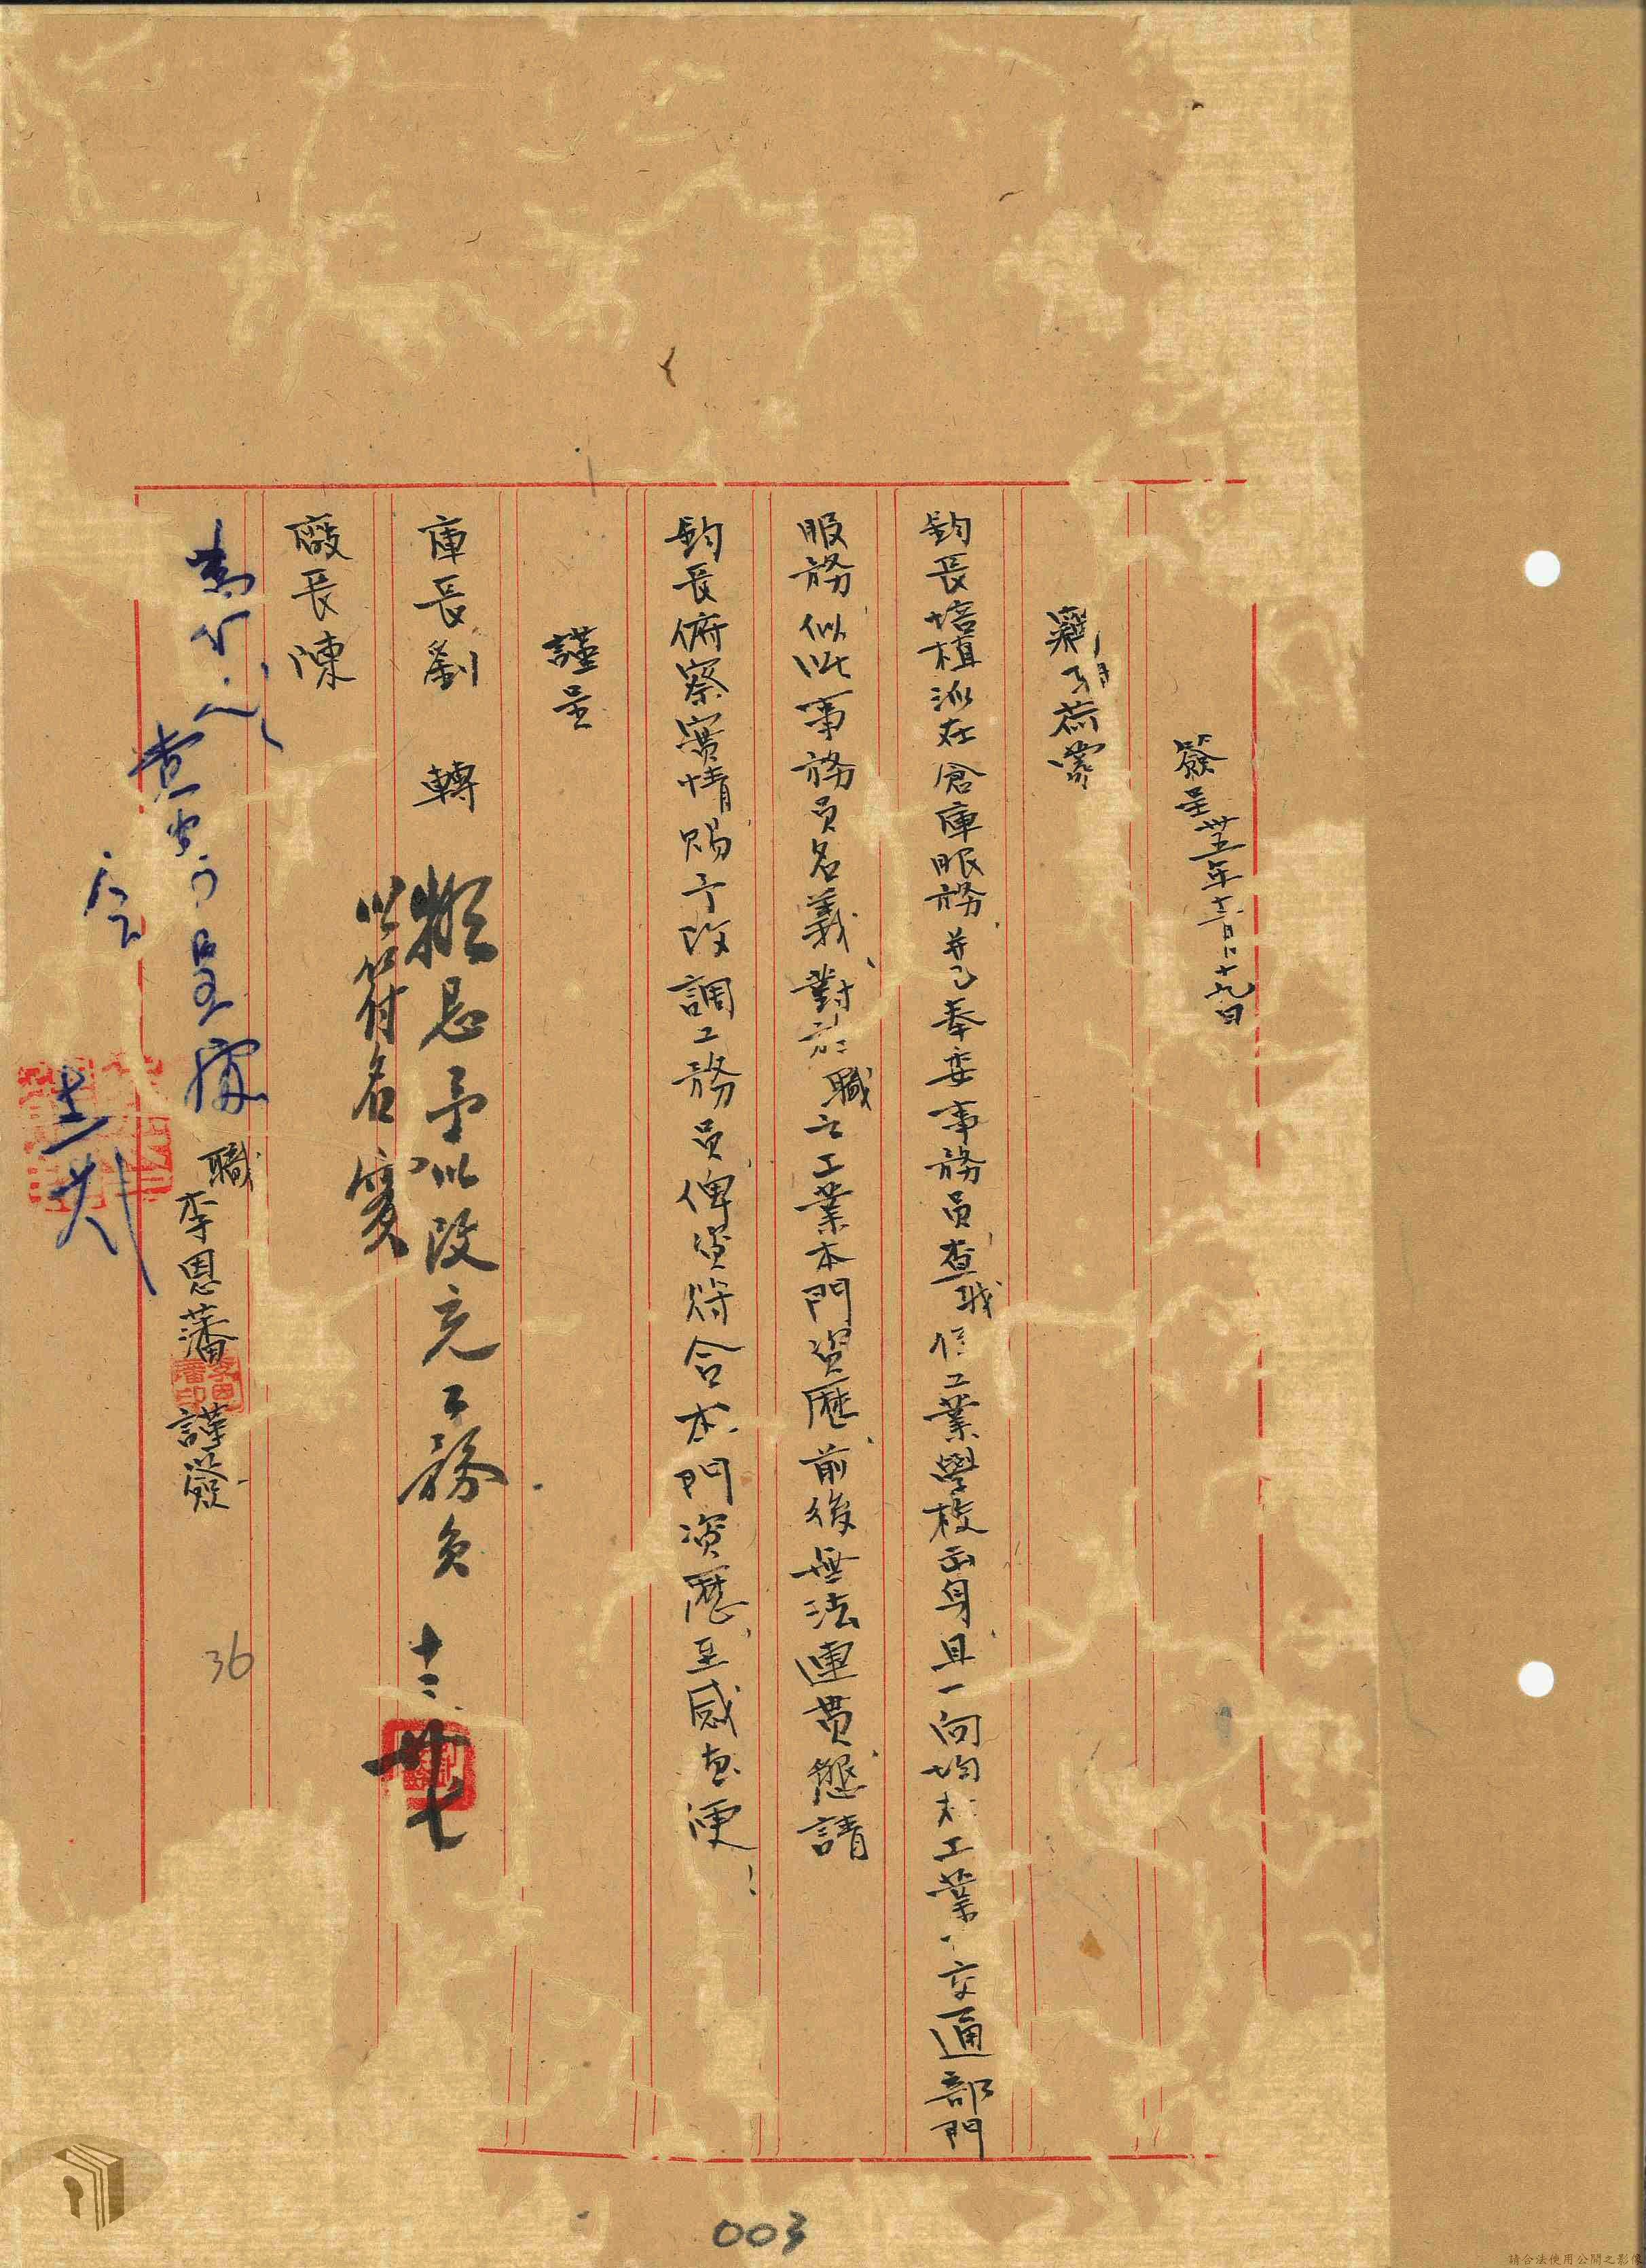 簽呈卅五年十二月廿九日
竊職荷蒙
鈞長培植派在倉庫服務並已奉委事務員查職係工業學校出身且一向均於工業、交通部門
服務似此事務員名義對於職之工業本門資歷前後無法連貫懇請
鈞長俯察實情賜予改調工務員俾資符合本門資歷至感恩便！
謹呈
庫長劉 轉
廠長陳
擬懇予以改充工務員 十二 廿七
以符名實
職李恩藩謹簽
李恩藩印
36
003
請合法使用公開之影像